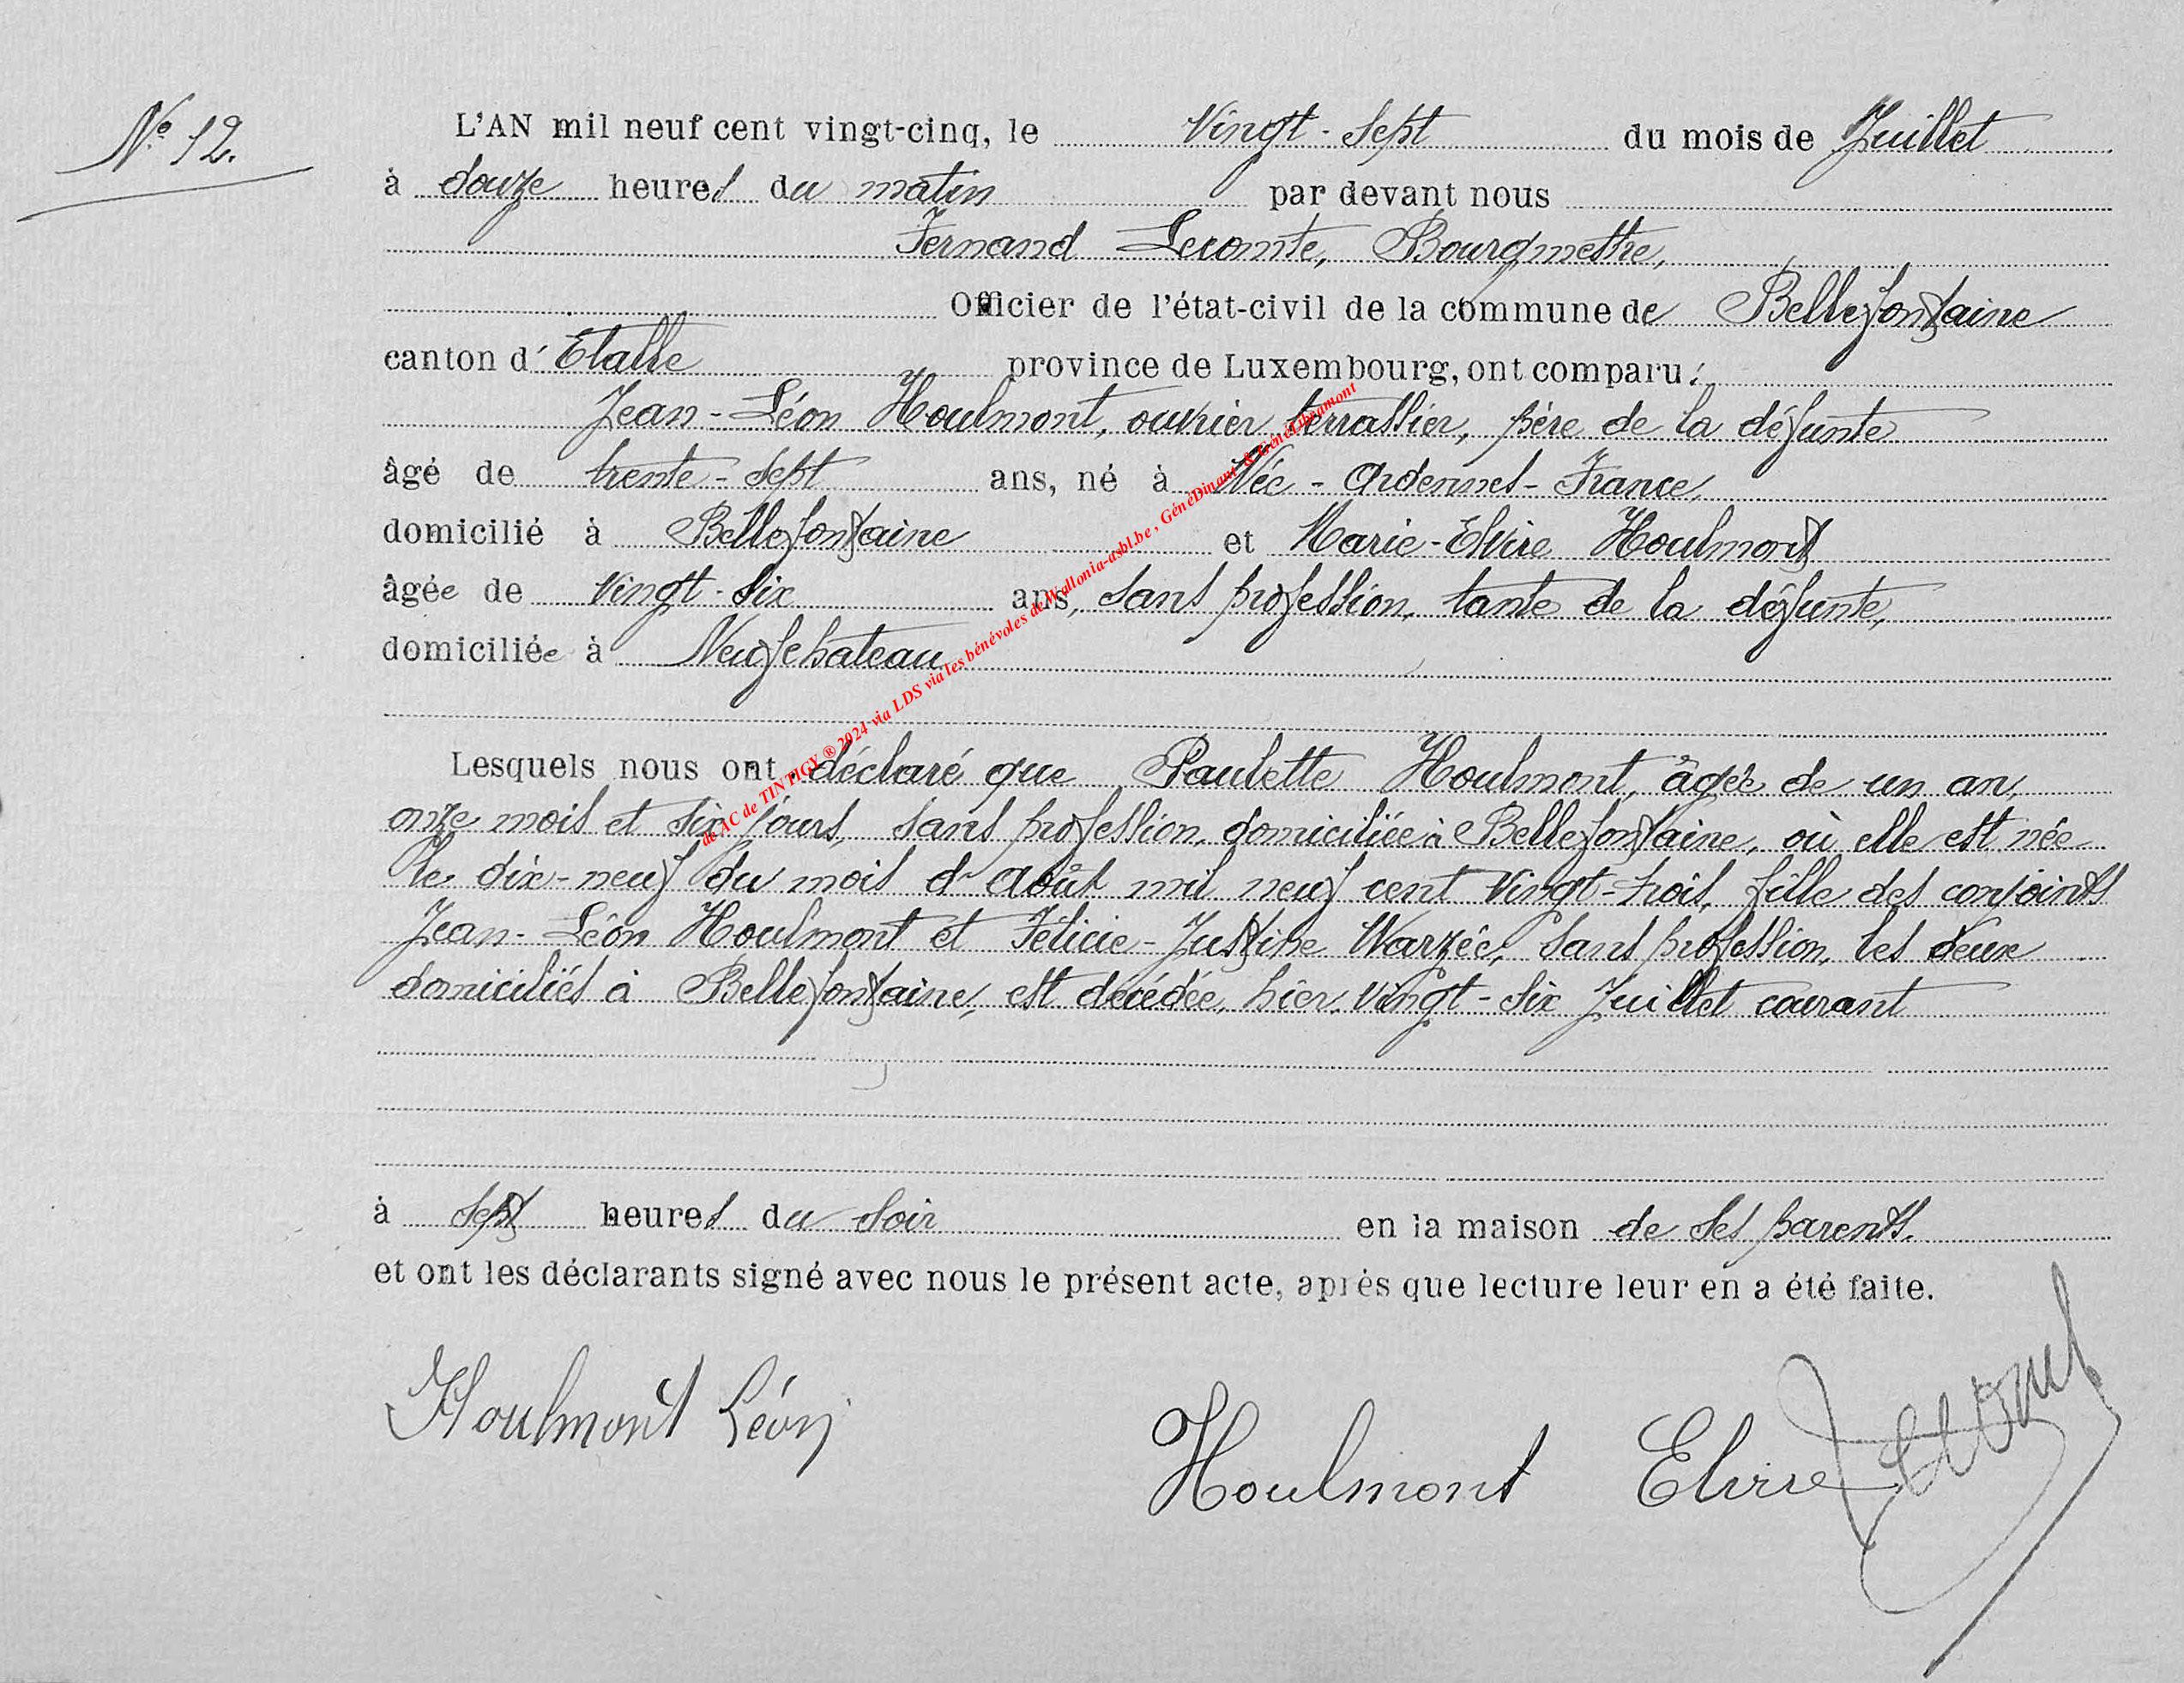 N° 12.
L'AN mil neuf cent vingt-cinq, le Vingt-sept du mois de Juillet
à douze heures du matin par devant nous
Fernand Lecomte, Bourgmestre,
Officier de l'état-civil de la commune de Bellefontaine
canton d'Etalle province de Luxembourg, ont comparu :
Jean-Léon Houlmont, ouvrier terrassier, père de la défunte
âgé de trente-sept ans, né à - Ardennes - France,
domicilié à Bellefontaine et Marie-Elvire Houlmont
âgée de vingt-six ans, sans profession, tante de la défunte,
domiciliée à Neufchateau
Lesquels nous ont déclaré que Paulette Houlmont, âgée de un an,
onze mois et six jours, sans profession, domiciliée à Bellefontaine, où elle est née
le dix-neuf du mois d'Août mil neuf cent vingt-trois, fille des conjoints
Jean-Léon Houlmont et Félicie-Justine Warzée, sans profession, les deux
domiciliés à Bellefontaine, est décédée, hier, vingt-six Juillet courant
à sept heures du soir en la maison de ses parents.
et ont les déclarants signé avec nous le présent acte, après que lecture leur en a été faite.
Houlmont Léon
Houlmont Elvire
de AC de TINTIGY ® 2024 via LDS via les bénévoles de Wallonia-asbl.be , GénéDinant & GénéLibramont